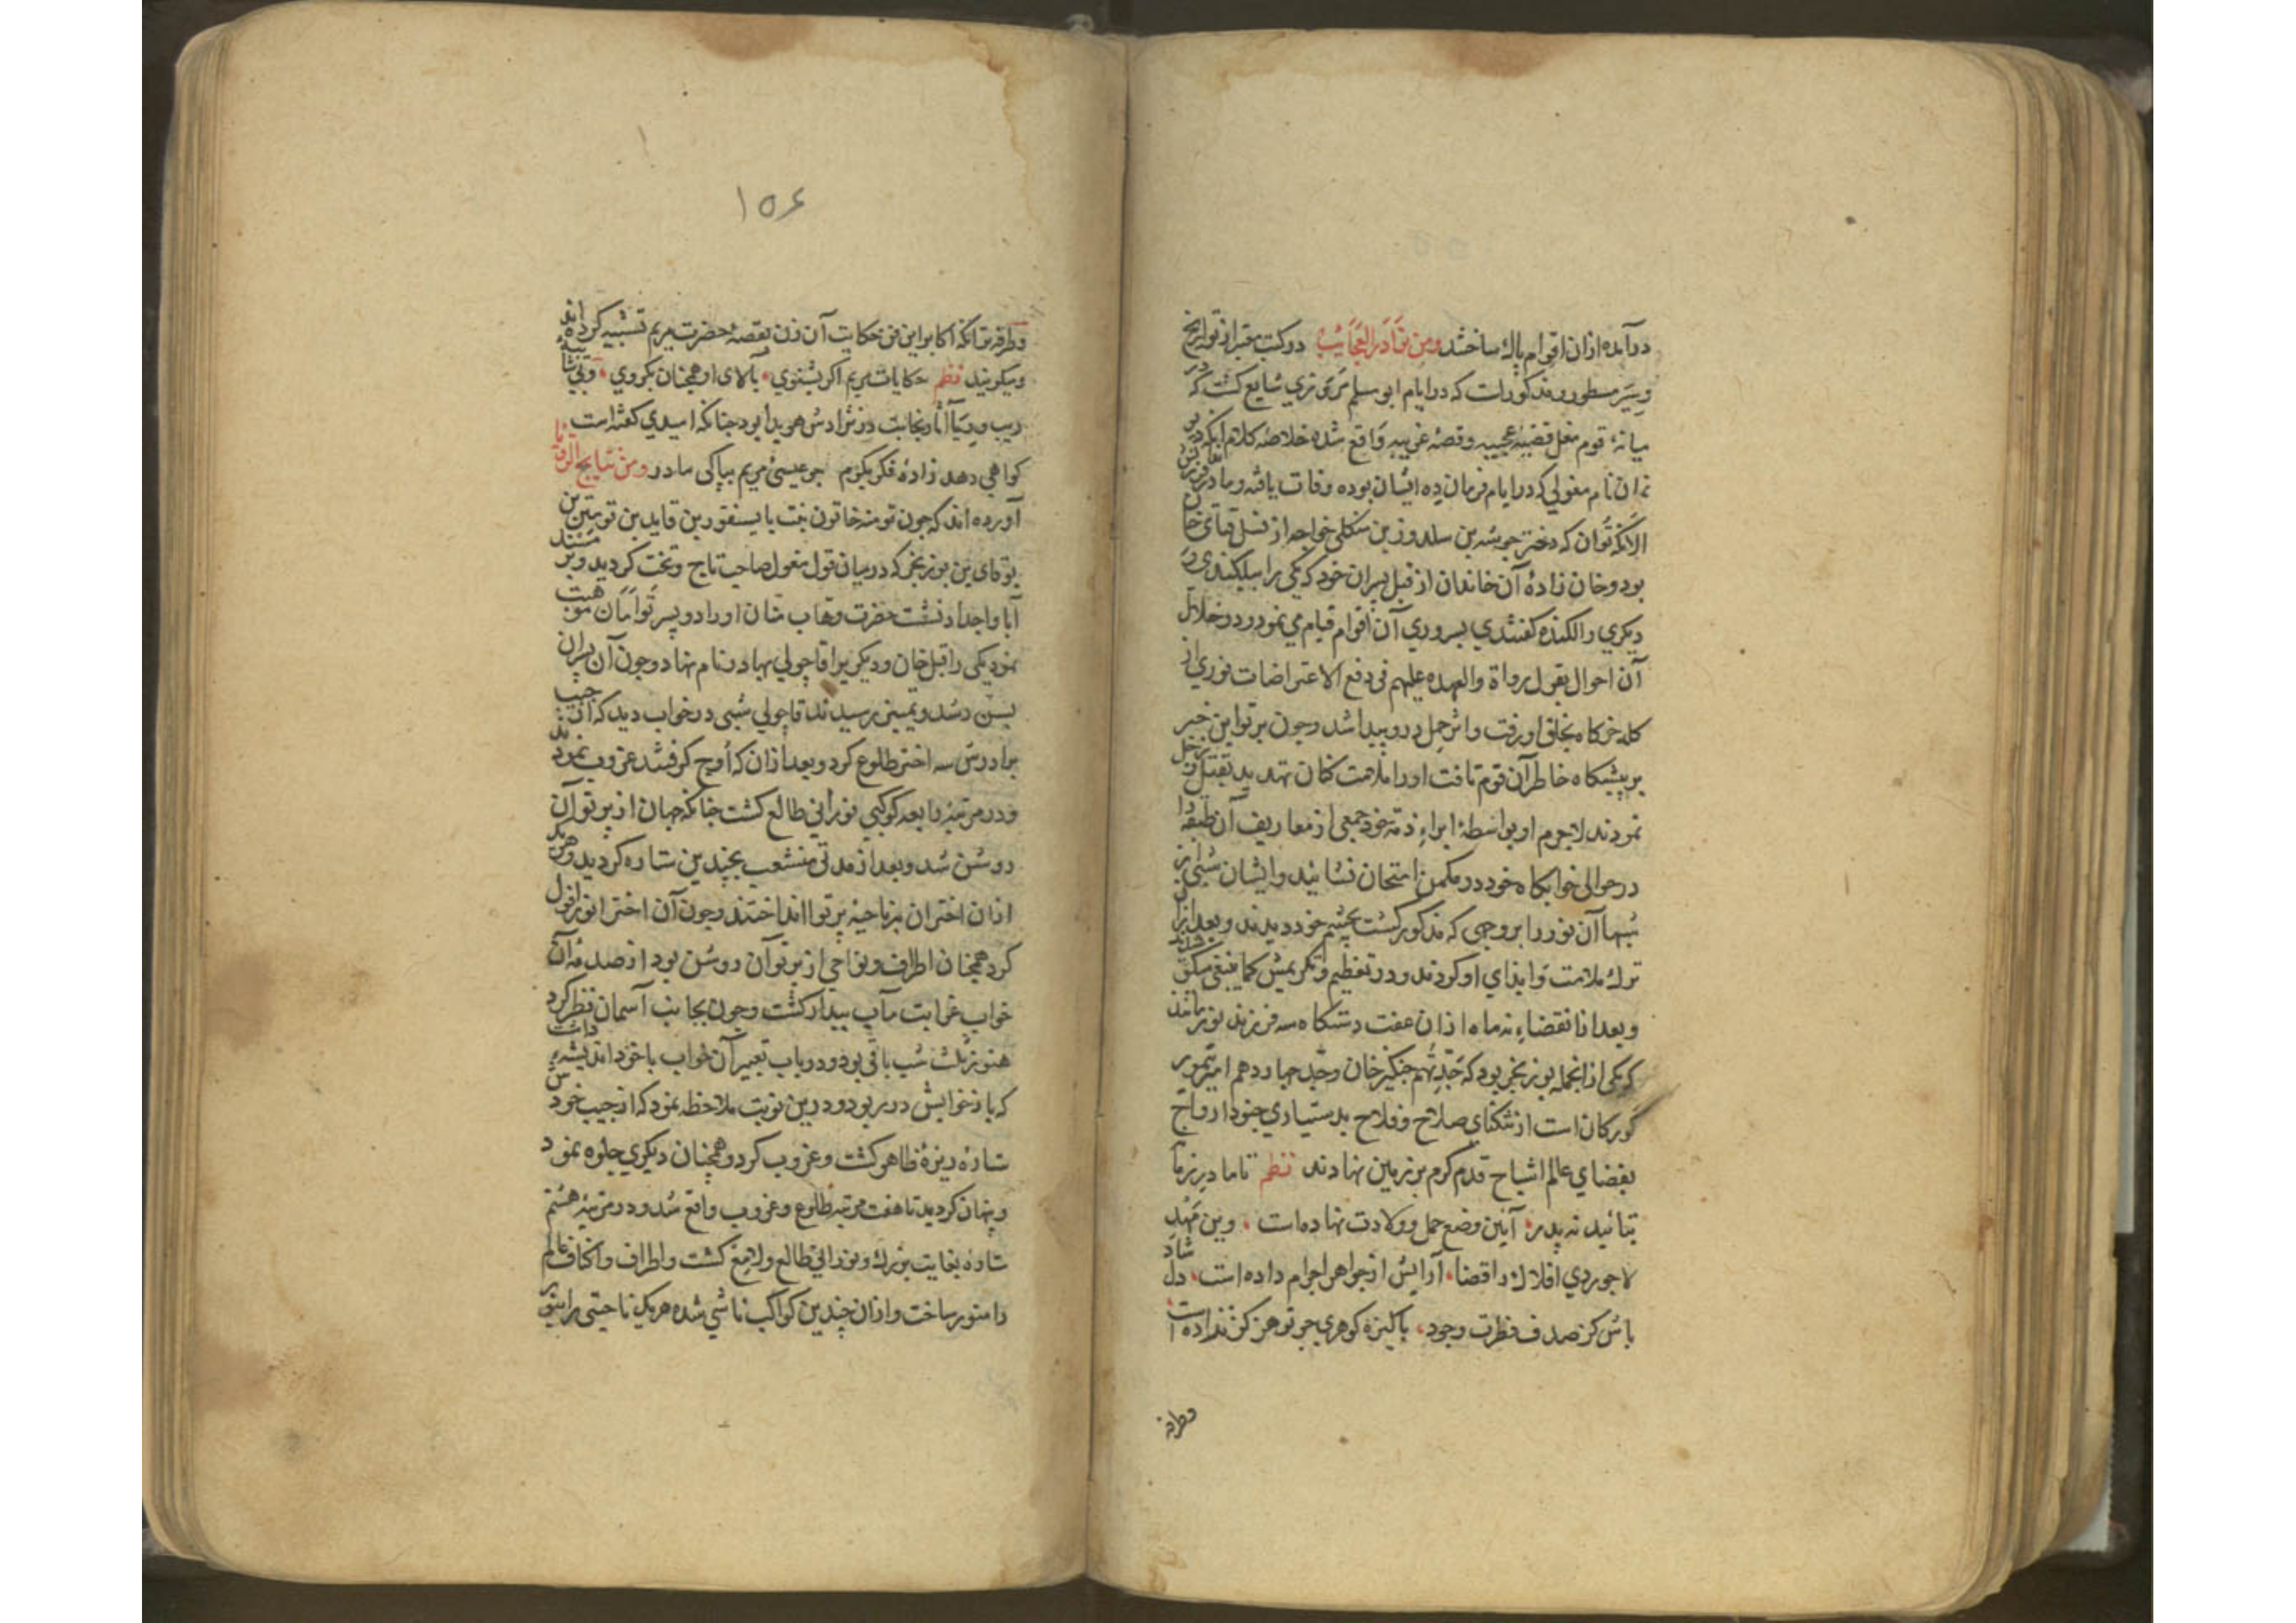 درآمده ازان اقوام پاك ساختند ومن نوادر العجایب در کتب معتبر از تواریخ
وسیر مسطور و مذکورات که در ایام ابو سلم مروزی شایع کشت که در
میانهٔ قوم مغل قضیهٔ عجیبه وقصهٔ غریبه واقع شده خلاصه کلام آنکه
نام مغولی که در ایام فرمان ده ایشان بوده وفات یافته ومادر
الانکه توان که دختر جوبینه بن سلدوز بن منکلی خواجه از نسل قیای خان
بود وخان زادهٔ آن خاندان از قبل پسران خود که یکی را بیلکندی و
دیکری را لکنده کفتندی بسروری آن اقوام قیام می نمود و در خلال
آن احوال بقول رواة والعهده علیهم فی دفع الاعتراضات نوری از
کله خرکاه بحلق او رفت واثر حمل درو پیدا شد وچون پرتو این خبر
بر پیشکاه خاطر آن قوم تافت اورا ملامت کنان تهدید بقتل و
نمودند لاجرم او بواسطهٔ ابراء ذمه خود جمعی از معاریف آن طبقه را
در حوالی خوابکاه خود در مکمن امتحان نشانید وایشان شبی از
شبها آن نور را بر وجهی که مذکور کشت بچشم خود دیدند و بعد از آن
ترك ملامت وایذای او کردند ودر تعظیم وتکریمش کما ینبغی
وبعد از انقضاء نه ماه ازان عفت دستکاه سه فرزند نورمانند
که یکی از انجمله بوزنجر بود که جد نهم جنکیز خان وجد چهاردهم امیر تیمور
کورکان است از تنکنای صلاح وفلاح بدستیاری جنود ارواح
بفضای عالم اشباح قدم کرم بر زمین نهادند نظم تا مادر زمانه
بتائید نه پدر آیین وضع حمل وولادت نهاده است وین مهد
لاجوردی افلاك را قضا آرایش از جواهر اجرام داده است دل شاد
باش کز صدف فطرت وجود پاکیزه کوهری چو تو هرکز نزاده است
وطرفه
۱۵۶
وطرفه تر آنکه اکابر این فن حکایت آن زن بقصهٔ حضرت مریم تشبیه کرده اند
ومیکویند نظم حکایات مریم اکر بشنوی بآلان او همچنان بکروی وبی شایبهٔ
ریب وریا آثار نجابت در نژادش هویدا بود چنانکه امیدی کفته است
کواهی دهد زادهٔ فکر بکرم چو عیسی مریم بپاکی مادر ومن نتایج الرؤیا
آورده اند که چون تومنه خاتون بنت بایسنقور بن قایدبن تومنین بن
بوقای بن بوزنجر که درمیان قول مغول صاحب تاج وتخت کردید وبر مسند
آبا واجداد نشست حضرت وهاب منان اورا دو پسر توامان موهبت
نمود یکی را قبل خان ودیکری را قاجولی بهادر نام نهاد وچون آن پسران
بسن رشد وتمییز رسیدند قاجولی شبی در خواب دید که از جیب
برادرش سه اختر طلوع کرد وبعد ازان که اوج کرفتند غروب نمودند
ودر مرتبهٔ رابعه کوکبی نورانی طالع کشت چنانکه جهان از پرتو آن
روشن شد وبعد از مدتی منشعب بچندین ستاره کردید وهریک
ازان اختران بر ناحیه پرتو انداختند وچون آن اختر انور افول
کرد همچنان اطراف ونواحی از پرتو آن روشن بود از صدمهٔ آن
خواب غرابت مآب بیدار کشت وچون بجانب آسمان نظر کرد
هنوز ثلث شب باقی بود ودر باب تعبیر آن خواب باخود اندیشه داشت
که باز خوابش در ربود ودرین نوبت ملاحظه نمود که از جیب خودش
ستاره ریزهٔ ظاهر کشت وغروب کرد وهمچنان دیکری جلوه نمود
وپنهان کردید تا هفت مرتبه طلوع وغروب واقع شد ودر مرتبهٔ هشتم
ستاره بغایت بزرك ونورانی طالع ولامع کشت واطراف واکناف عالم
را منور ساخت وازان چندین کواکب ناشی شده هریک ناحیتی را